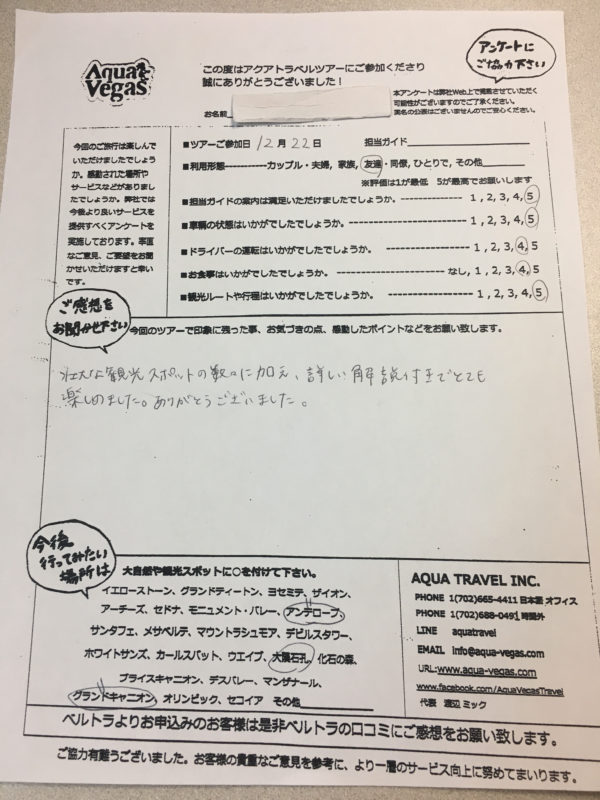 Aqua
Vegas
この度はアクアトラベルツアーにご参加くださり
誠にありがとうございました！
アンケートに
ご協力下さい
本アンケートは弊社Web上で掲載させていただく
可能性がございますのでご了承ください。
実名の公表はございませんのでご安心ください。
お名前
今回のご旅行は楽しんで
いただけましたでしょう
か。感動された場所や
サービスなどがありまし
たでしょうか。弊社では
今後より良いサービスを
提供すべくアンケートを
実施しております。率直
なご意見、ご要望をお聞
かせいただけますと幸い
です。
■ツアーご参加日 12月22日 担当ガイド
■利用形態------------カップル・夫婦, 家族, 友達・同僚, ひとりで, その他
※評価は1が最低 5が最高でお願いします
■担当ガイドの案内は満足いただけましたでしょうか。 --------------- 1, 2, 3, 4, 5
■車輌の状態はいかがでしたでしょうか。 ------------------------- 1, 2, 3, 4, 5
■ドライバーの運転はいかがでしたでしょうか。 ------------------ 1, 2, 3, 4, 5
■お食事はいかがでしたでしょうか。 ------------------------- なし, 1, 2, 3, 4, 5
■観光ルートや行程はいかがでしたでしょうか。 ----------------- 1, 2, 3, 4, 5
ご感想を
お聞かせ下さい
今回のツアーで印象に残った事、お気づきの点、感動したポイントなどをお願い致します。
壮大な観光スポットの数々に加え、詳しい解説付きでとても
楽しめました。ありがとうございました。
今後
行ってみたい
場所は
大自然や観光スポットに○を付けて下さい。
イエローストーン、グランドティートン、ヨセミテ、ザイオン、
アーチーズ、セドナ、モニュメント・バレー、アンテロープ、
サンタフェ、メサベルテ、マウントラシュモア、デビルスタワー、
ホワイトサンズ、カールスバット、ウエイブ、大隕石孔、化石の森、
ブライスキャニオン、デスバレー、マンザナール、
グランドキャニオン, オリンピック、セコイア その他
AQUA TRAVEL INC.
PHONE 1(702)665-4411 日本語 オフィス
PHONE 1(702)688-0491 時間外
LINE aquatravel
EMAIL info@aqua-vegas.com
URL:www.aqua-vegas.com
www.facebook.com/AquaVegasTravel
代表 渡辺 ミック
ベルトラよりお申込みのお客様は是非ベルトラの口コミにご感想をお願い致します。
ご協力有難うございました。お客様の貴重なご意見を参考に、より一層のサービス向上に努めてまいります。